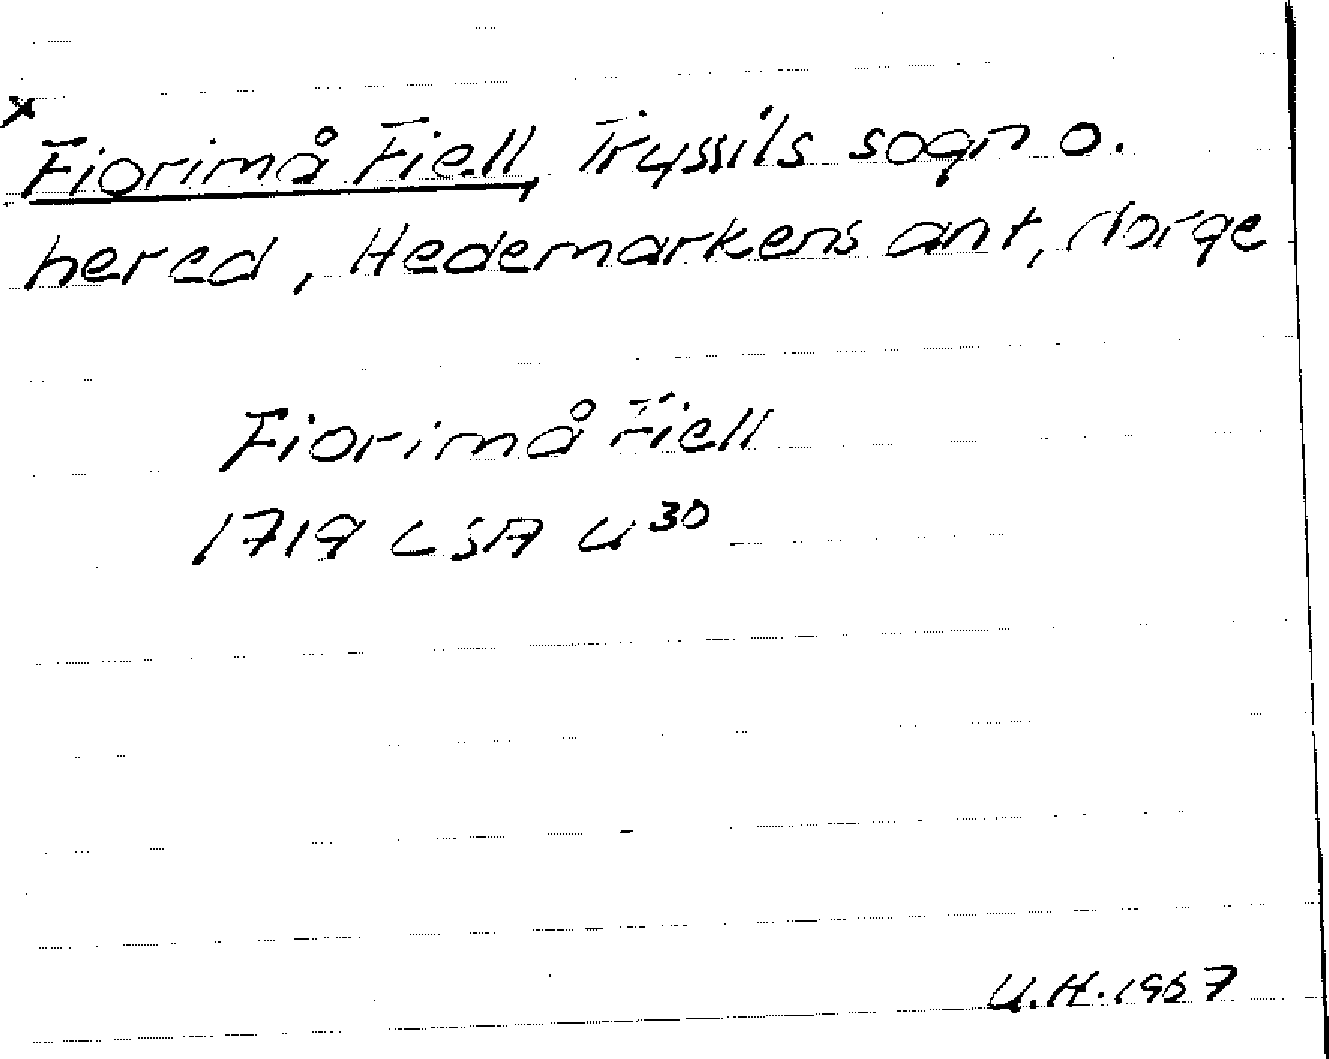 x
Fiorimå Fiell, Tryssils sogn o.
hered, Hedemarkens amt, Norge
Fiorimå Fiell
1719 LSA U30
U.H. 1967